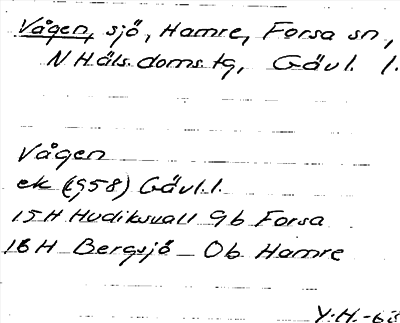 Vågen, sjö, Hamre, Forsa sn,
N Häls. doms. tg, Gävl. l.
Vågen
ek (1958) Gävl.l.
15H Hudiksvall 9b Forsa
16H Bergsjö 0b Hamre
Y.H.-63